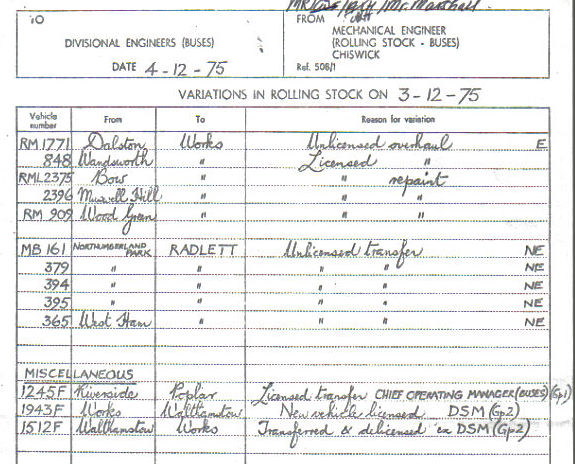 Mr Marshall
TO
FROM
DIVISIONAL ENGINEERS (BUSES)
MECHANICAL ENGINEER
(ROLLING STOCK - BUSES)
CHISWICK
DATE 4-12-75
Ref. 508/1
VARIATIONS IN ROLLING STOCK ON 3-12-75
Vehicle number From To Reason for variation
RM 1771 Dalston Works Unlicensed overhaul E
848 Wandsworth " Licensed "
RML2375 Bow " " repaint
2396 Muswell Hill " " "
RM 909 Wood Green " " "
MB 161 NORTHUMBERLAND PARK RADLETT Unlicensed transfer NE
379 " " " " NE
394 " " " " NE
395 " " " " NE
365 West Ham " " " NE
MISCELLANEOUS
1245F Riverside Poplar Licensed transfer CHIEF OPERATING MANAGER (BUSES) (Gp1)
1943F Works Walthamstow New vehicle licensed DSM (Gp2)
1512F Walthamstow Works Transferred & delicensed ex DSM (Gp2)